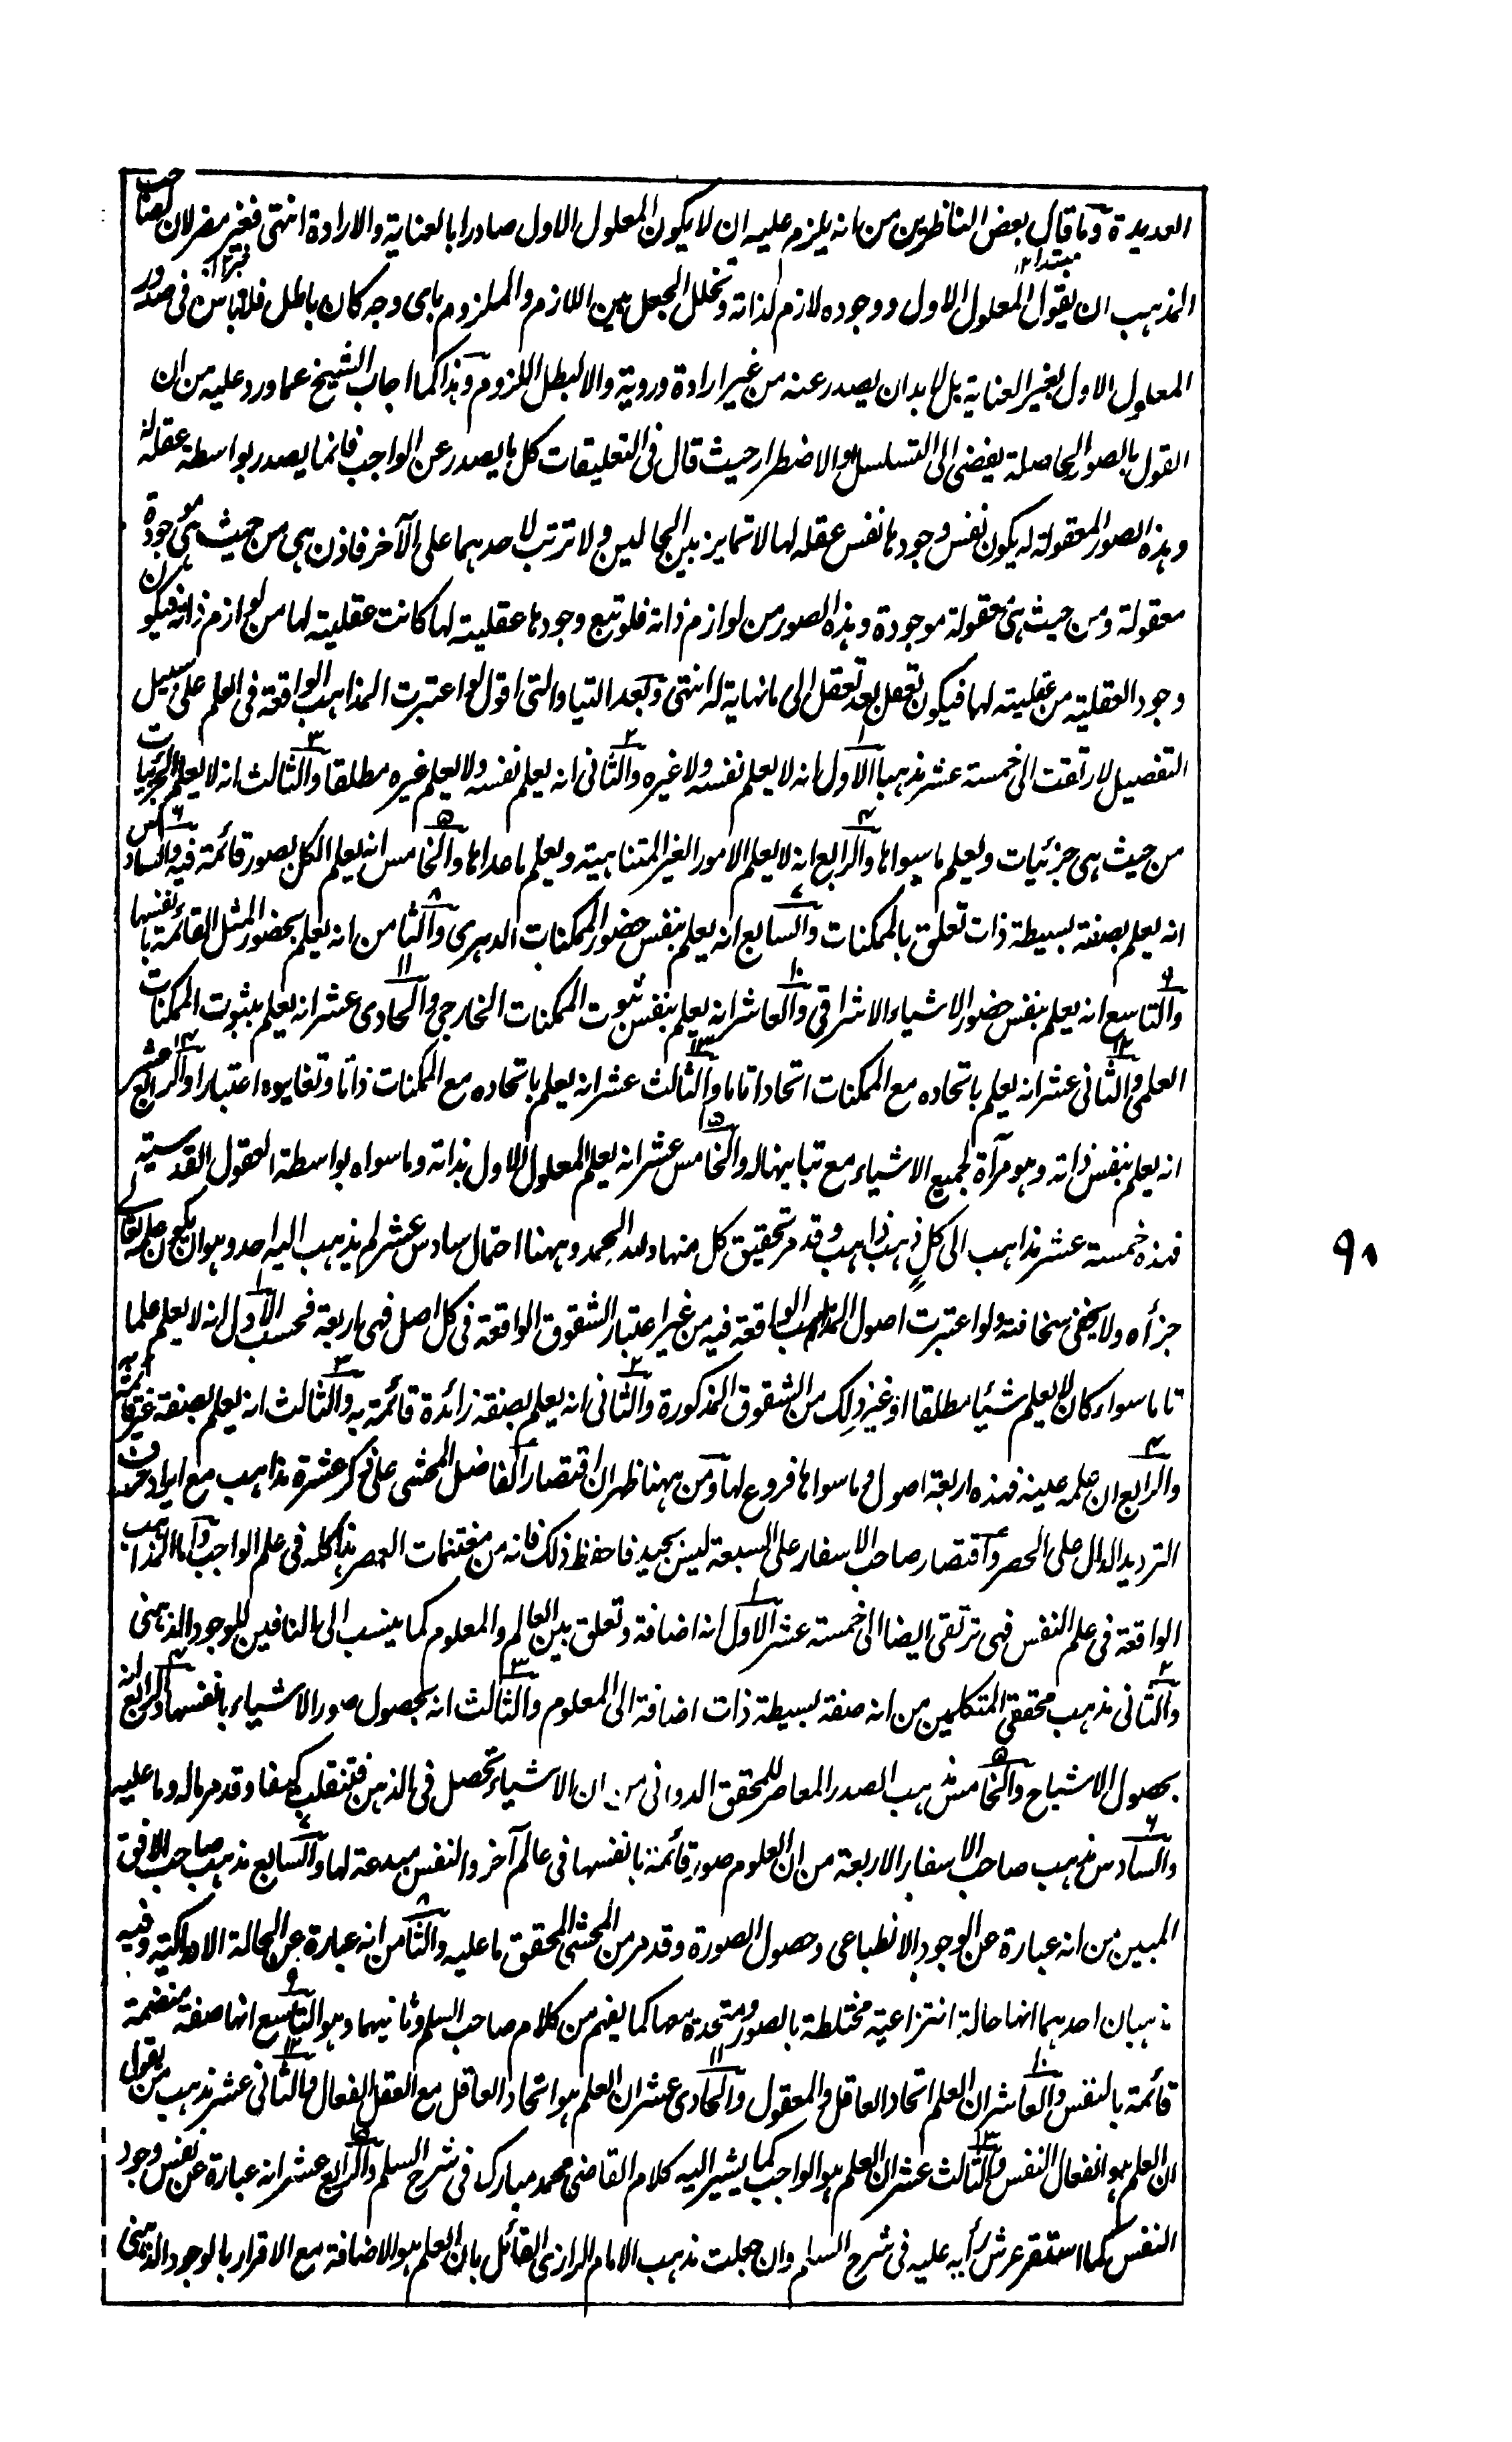 العديدة وما قال بعض الناظرين من انه يلزم عليه ان لا يكون المعلول الاول صادرا بالعناية والارادة انتهى فغير مضر لان لصاحب
المذهب ان يقول المعلول الاول ووجوده لازم لذاته وتخلل الجعل بين اللازم والملزوم باى وجه كان باطل فلا باس فى صدور
المعلول الاول بغير العناية بل لا بد ان يصدر عنه من غير ارادة وروية والا لبطل اللزوم وهذا كما اجاب الشيخ عما ورد عليه من ان
القول بالصور الحاصلة يفضى الى التسلسل او الاضطرار حيث قال فى التعليقات كل ما يصدر عن الواجب فانما يصدر بواسطة عقله له
وهذه الصور المعقولة له يكون نفس وجودها نفس عقله لها لا تمايز بين الحالين ولا ترتب لاحدهما على الآخر فاذن هى من حيث هى موجودة
معقولة ومن حيث هى معقولة موجودة وهذه الصور من لوازم ذاته فلو تبع وجودها عقليته لها كانت عقليته لها من لوازم ذاته فيكون
وجود العقلية من عقليته لها فيكون تعقل بعد تعقل الى ما نهاية له انتهى وبعد اللتيا والتى اقول لو اعتبرت المذاهب الواقعة فى العلم على سبيل
التفصيل لارتقت الى خمسة عشر مذهبا الاول انه لا يعلم نفسه ولا غيره والثانى انه يعلم نفسه ولا يعلم غيره مطلقا والثالث انه لا يعلم الجزئيات
من حيث هى جزئيات ويعلم ما سواها والرابع انه لا يعلم الامور الغير المتناهية ويعلم ما عداها والخامس انه يعلم الكل بصور قائمة فيه والسادس
انه يعلم بصفة بسيطة ذات تعلق بالممكنات والسابع انه يعلم بنفس حضور الممكنات الدهرى والثامن انه يعلم بحضور المثل القائمة بانفسها
والتاسع انه يعلم بنفس حضور الاشياء الاشراقى والعاشر انه يعلم بنفس ثبوت الممكنات الخارجى والحادى عشر انه يعلم بثبوت الممكنات
العلمى والثانى عشر انه يعلم باتحاده مع الممكنات اتحادا تاما والثالث عشر انه يعلم باتحاده مع الممكنات ذاتا وتغايره اعتبارا والرابع عشر
انه يعلم بنفس ذاته وهو مرآة لجميع الاشياء مع تباينها له والخامس عشر انه يعلم المعلول الاول بذاته وما سواه بواسطة العقول القدسية
فهذه خمسة عشر مذاهب الى كل ذهب ذاهب وقد مر تحقيق كل منها ولله الحمد وههنا احتمال سادس عشر لم يذهب اليه احد وهو ان يكون علمه تعالى
جزأه ولا يخفى سخافته ولو اعتبرت اصول المذاهب الواقعة فيه من غير اعتبار الشقوق الواقعة فى كل اصل فهى اربعة فحسب الاول انه لا يعلم علما
تاما سواء كان لا يعلم شيئا مطلقا او غير ذلك من الشقوق المذكورة والثانى انه يعلم بصفة زائدة قائمة به والثالث انه يعلم بصفة غير قائمة به
والرابع ان علمه عينه فهذه اربعة اصول وما سواها فروع لها ومن ههنا ظهر ان اقتصار الفاضل المحشى على ذكر عشرة مذاهب مع ايراد حرف
الترديد الدال على الحصر واقتصار صاحب الاسفار على السبعة ليس بجيد فاحفظ ذلك فانه من مغتنمات العصر هذا كله فى علم الواجب واما المذاهب
الواقعة فى علم النفس فهى ترتقى ايضا الى خمسة عشر الاول انه اضافة وتعلق بين العالم والمعلوم كما ينسب الى النافين للوجود الذهنى
والثانى مذهب محققى المتكلمين من انه صفة بسيطة ذات اضافة الى المعلوم والثالث انه بحصول صور الاشياء بانفسها والرابع انه
بحصول الاشباح والخامس مذهب الصدر المعاصر للمحقق الدوانى من ان الاشياء تحصل فى الذهن فتنقلب كيفا وقد مر ماله وما عليه
والسادس مذهب صاحب الاسفار الاربعة من ان العلوم صور قائمة بانفسها فى عالم آخر والنفس مبدعة لها والسابع مذهب صاحب الافق
المبين من انه عبارة عن الوجود الانطباعى وحصول الصورة وقد مر من المحشى المحقق ما عليه والثامن انه عبارة عن الحالة الادراكية وفيه
مذهبان احدهما انها حالة انتزاعية مختلطة بالصور ومتحدة معها كما يفهم من كلام صاحب السلم وثانيهما وهو التاسع انها صفة منضمة
قائمة بالنفس والعاشر ان العلم اتحاد العاقل والمعقول والحادى عشر ان العلم هو اتحاد العاقل مع العقل الفعال والثانى عشر مذهب من يقول
ان العلم هو انفعال النفس والثالث عشر ان العلم هو الواجب كما يشير اليه كلام القاضى محمد مبارك فى شرح السلم والرابع عشر انه عبارة عن نفس وجود
النفس كما استقر عرش رأيه عليه فى شرح السلم وان جعلت مذهب الامام الرازى القائل بان العلم هو الاضافة مع الاقرار بالوجود الذهنى
٩٨